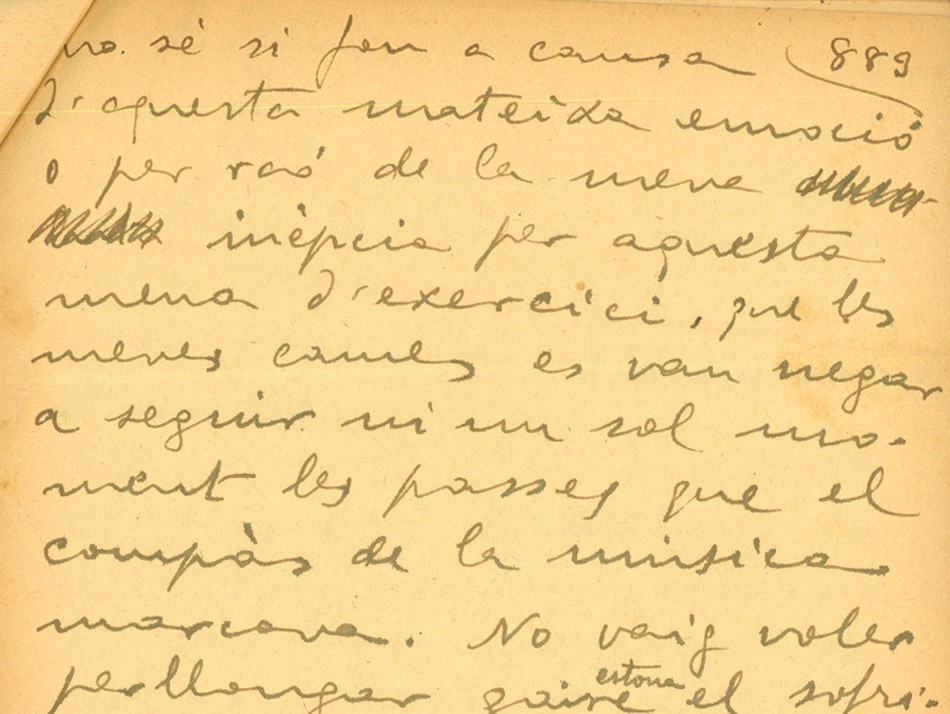 no sé si fou a causa 889
d'aquesta mateixa emoció
o per raó de la meva
inèpcia per aquesta
mena d'exercici, que les
meves cames es van negar
a seguir ni un sol mo-
ment les passes que el
compàs de la música
marcava. No vaig voler
estona
perllongar gaire el sofri-